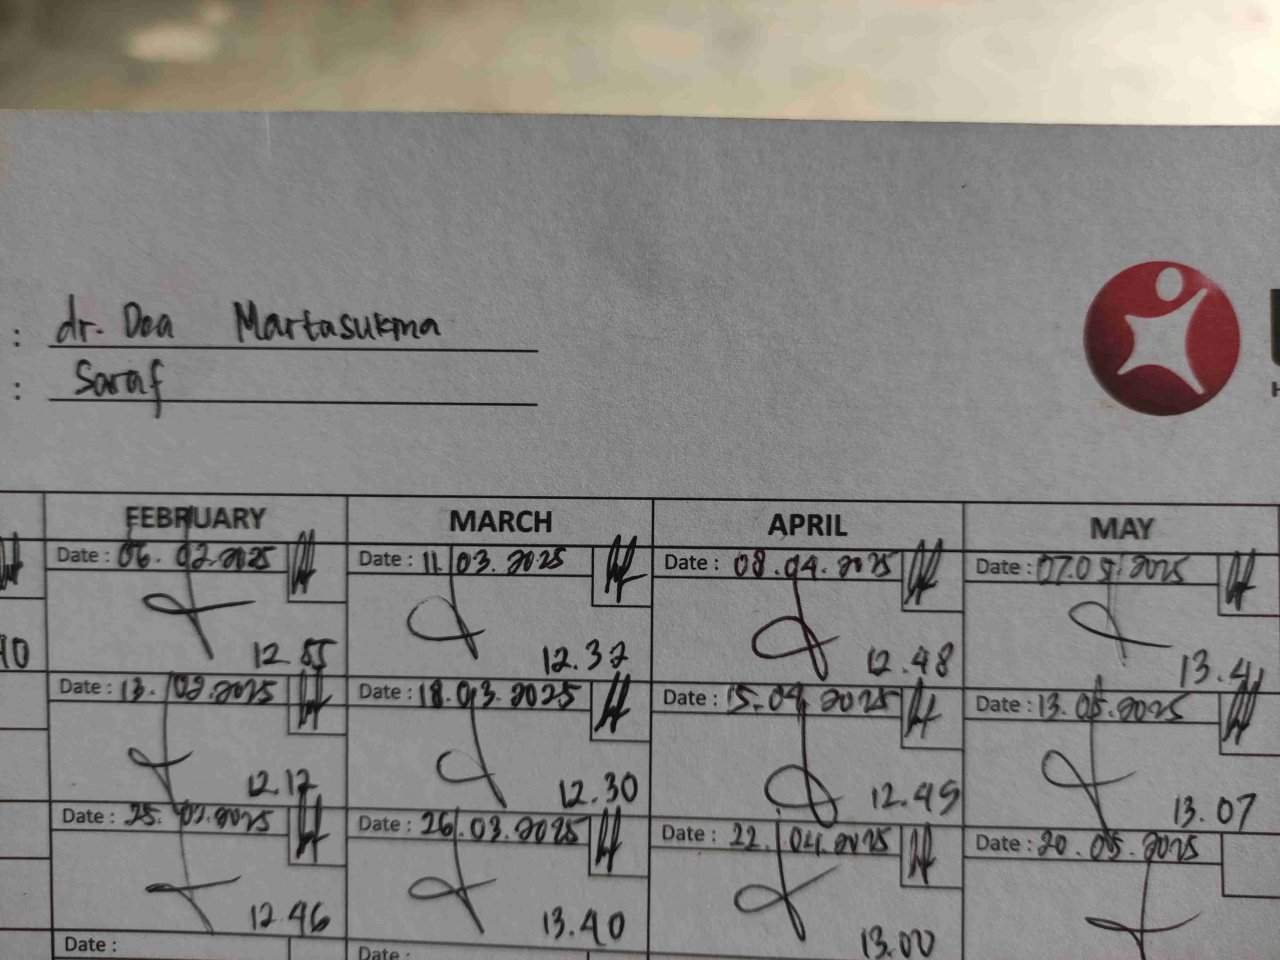 : dr. Dea Martasukma
: Saraf
H
FEBRUARY MARCH APRIL MAY
Date : 06.02.2025 Date : 11.03.2025 Date : 08.04.2025 Date : 07.05.2025
40 12.55 12.32 12.48 13.41
Date : 13.02.2025 Date : 18.03.2025 Date : 15.04.2025 Date : 13.05.2025
12.17 12.30 12.49 13.07
Date : 25.02.2025 Date : 26.03.2025 Date : 22.04.2025 Date : 20.05.2025
12.46 13.40 13.00
Date : Date :